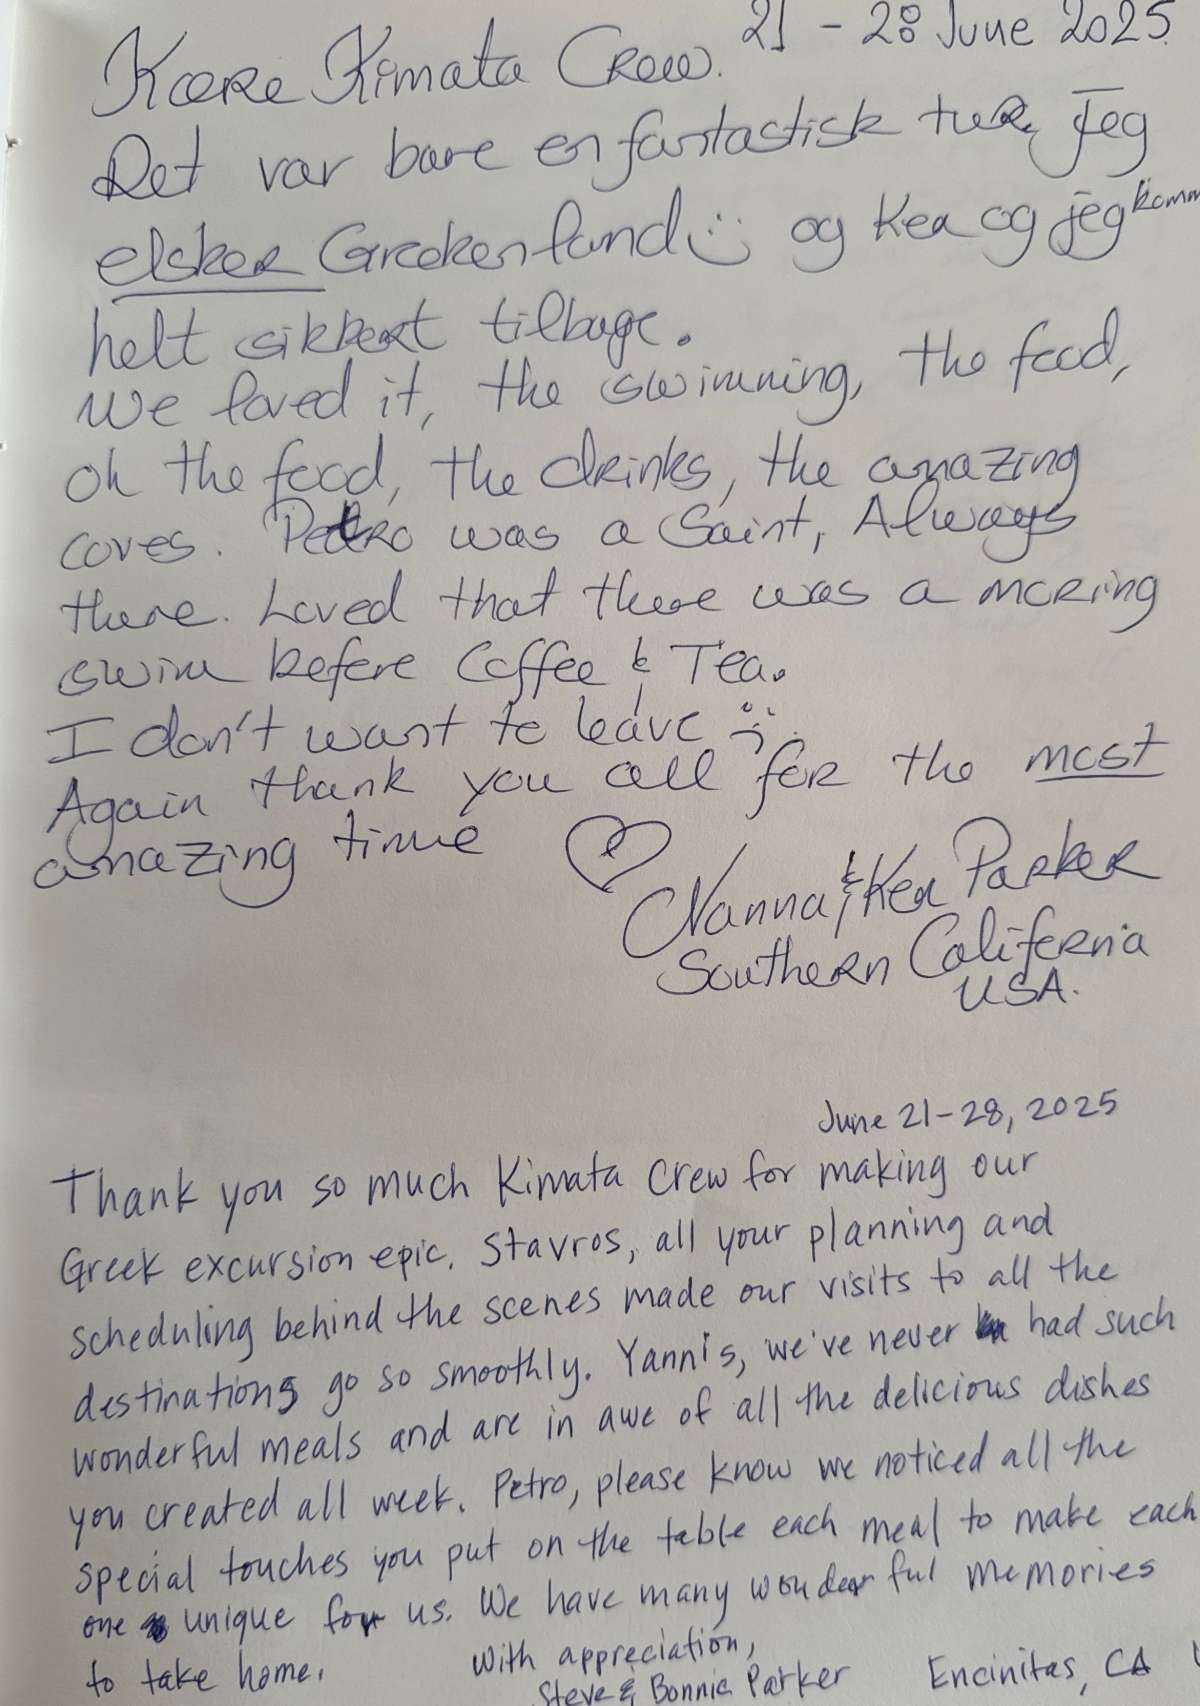 21 - 28 June 2025
Kære Kimata Crew.
Det var bare en fantastisk tur, Jeg
elsker Grækenland :) og Kea og jeg komm
helt sikkert tilbage.
We loved it, the swimming, the food,
oh the food, the drinks, the amazing
coves. Petro was a Saint, Always
there. Loved that there was a moring
swim before Coffee & Tea.
I don't want to leave :(.
Again thank you all for the most
amazing time ♡
Nanna & Kea Parker
Southern California
USA.
June 21-28, 2025
Thank you so much Kimata crew for making our
Greek excursion epic. Stavros, all your planning and
scheduling behind the scenes made our visits to all the
destinations go so smoothly. Yannis, we've never had such
wonderful meals and are in awe of all the delicious dishes
you created all week. Petro, please know we noticed all the
special touches you put on the table each meal to make each
one unique for us. We have many wonderful memories
to take home.
With appreciation,
Steve & Bonnie Parker Encinitas, CA